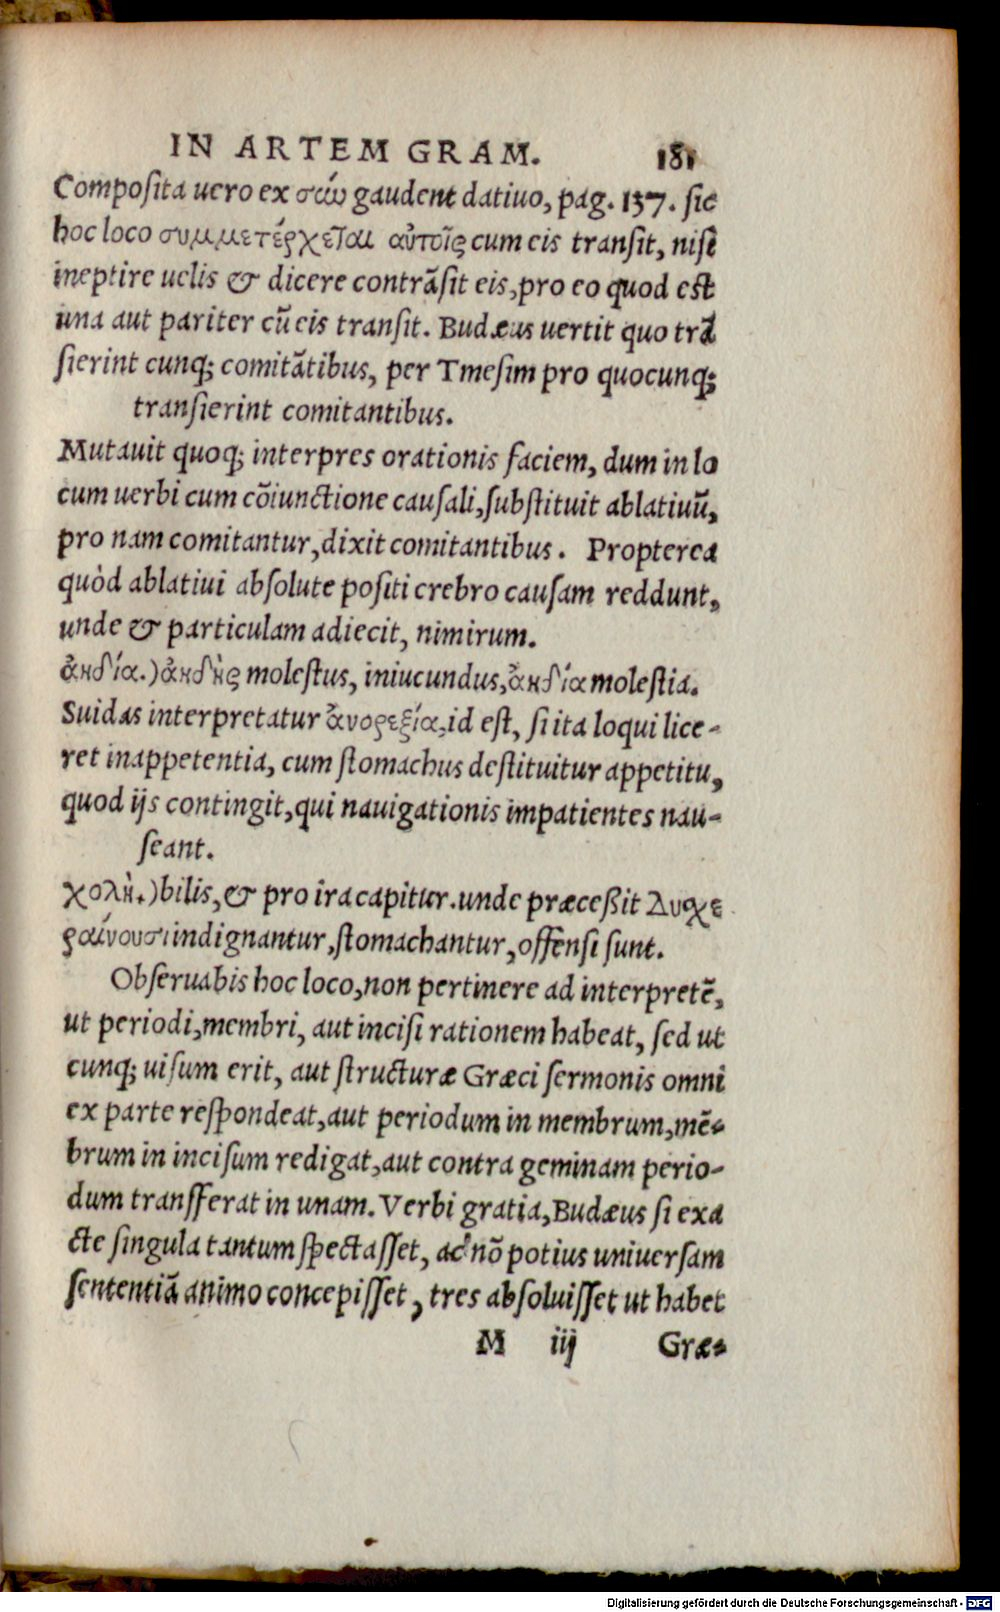 IN ARTEM GRAM. 181
Composita uero ex σὼ gaudent datiuo, pag. 137. sic
hoc loco συμμετέρχεται αὐτοῖς cum eis transit, nisi
ineptire uelis & dicere contrãsit eis, pro eo quod est
una aut pariter cũ eis transit. Budæus uertit quo trã
sierint cunq; comitãtibus, per Tmesim pro quocunq;
transierint comitantibus.
Mutauit quoq; interpres orationis faciem, dum in lo
cum uerbi cum cõiunctione causali, substituit ablatiuũ,
pro nam comitantur, dixit comitantibus. Propterea
quòd ablatiui absolute positi crebro causam reddunt,
unde & particulam adiecit, nimirum.
ἀηδία.) ἀηδὴς molestus, iniucundus, ἀηδία molestia.
Suidas interpretatur ἀνορεξία, id est, si ita loqui lice-
ret inappetentia, cum stomachus destituitur appetitu,
quod ijs contingit, qui nauigationis impatientes nau-
seant.
χολὴ.) bilis, & pro ira capitur. unde præceßit Δυσχε
ραίνουσι indignantur, stomachantur, offensi sunt.
Obseruabis hoc loco, non pertinere ad interpretẽ,
ut periodi, membri, aut incisi rationem habeat, sed ut
cunq; uisum erit, aut structuræ Græci sermonis omni
ex parte respondeat, aut periodum in membrum, mẽ-
brum in incisum redigat, aut contra geminam perio-
dum transferat in unam. Verbi gratia, Budæus si exa
cte singula tantum spectasset, ac nõ potius uniuersam
sententiã animo concepisset, tres absoluisset ut habet
M iij Græ-
Digitalisierung gefördert durch die Deutsche Forschungsgemeinschaft - DFG